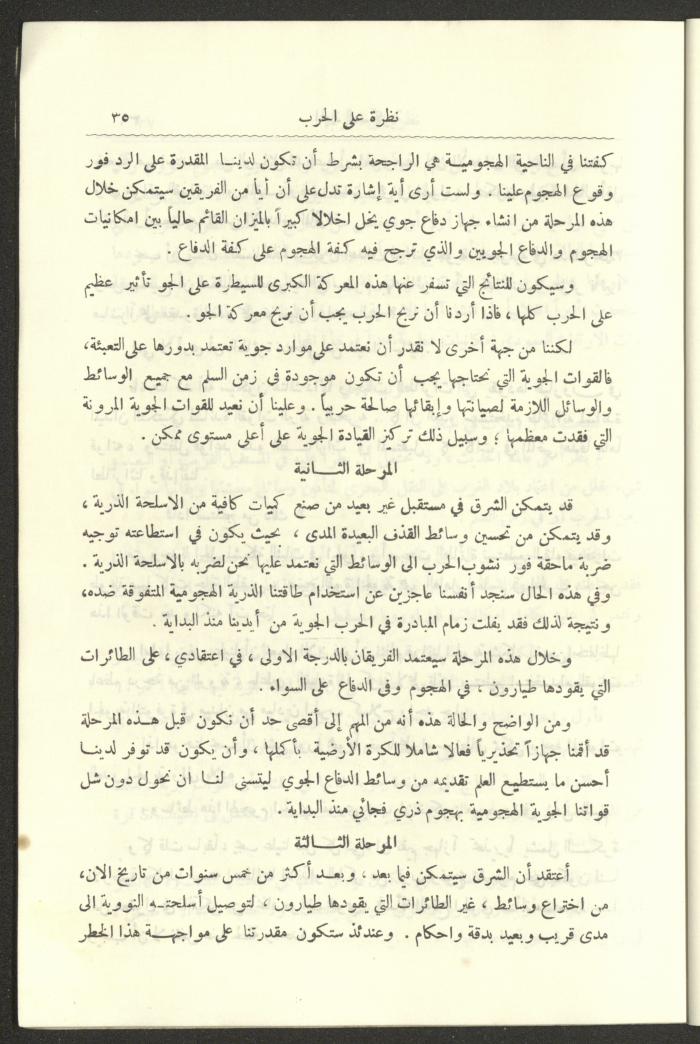 نظرة على الحرب
٣٥
كفتنا في الناحية الهجومية هي الراجحة بشرط أن تكون لدينا المقدرة على الرد فور
وقوع الهجوم علينا . ولست أرى أية إشارة تدل على أن أياً من الفريقين سيتمكن خلال
هذه المرحلة من انشاء جهاز دفاع جوي يخل اخلالا كبيراً بالميزان القائم حالياً بين امكانيات
الهجوم والدفاع الجويين والذي ترجح فيه كفة الهجوم على كفة الدفاع .
وسيكون للنتائج التي تسفر عنها هذه المعركة الكبرى للسيطرة على الجو تأثير عظيم
على الحرب كلها ، فاذا أردنا أن نربح الحرب يجب أن نربح معركة الجو .
لكننا من جهة أخرى لا نقدر أن نعتمد على موارد جوية تعتمد بدورها على التعبئة،
فالقوات الجوية التي نحتاجها يجب أن تكون موجودة في زمن السلم مع جميع الوسائط
والوسائل اللازمة لصيانتها وإبقائها صالحة حربياً . وعلينا أن نعيد للقوات الجوية المرونة
التي فقدت معظمها ؛ وسبيل ذلك تركيز القيادة الجوية على أعلى مستوى ممكن .
المرحلة الثانية
قد يتمكن الشرق في مستقبل غير بعيد من صنع كميات كافية من الاسلحة الذرية ،
وقد يتمكن من تحسين وسائط القذف البعيدة المدى ، بحيث يكون في استطاعته توجيه
ضربة ماحقة فور نشوب الحرب الى الوسائط التي نعتمد عليها نحن لضربه بالاسلحة الذرية .
وفي هذه الحال سنجد أنفسنا عاجزين عن استخدام طاقتنا الذرية الهجومية المتفوقة ضده،
ونتيجة لذلك فقد يفلت زمام المبادرة في الحرب الجوية من أيدينا منذ البداية .
وخلال هذه المرحلة سيعتمد الفريقان بالدرجة الاولى ، في اعتقادي ، على الطائرات
التي يقودها طيارون ، في الهجوم وفي الدفاع على السواء .
ومن الواضح والحالة هذه أنه من المهم إلى أقصى حد أن نكون قبل هذه المرحلة
قد أقمنا جهازاً تحذيرياً فعالا شاملا للكرة الأرضية بأكملها ، وأن يكون قد توفر لدينا
أحسن ما يستطيع العلم تقديمه من وسائط الدفاع الجوي ليتسنى لنا ان نحول دون شل
قواتنا الجوية الهجومية بهجوم ذري فجائي منذ البداية .
المرحلة الثالثة
أعتقد أن الشرق سيتمكن فيما بعد ، وبعد أكثر من خمس سنوات من تاريخ الان،
من اختراع وسائط ، غير الطائرات التي يقودها طيارون ، لتوصيل أسلحته النووية الى
مدى قريب وبعيد بدقة واحكام . وعندئذ ستكون مقدرتنا على مواجهة هذا الخطر